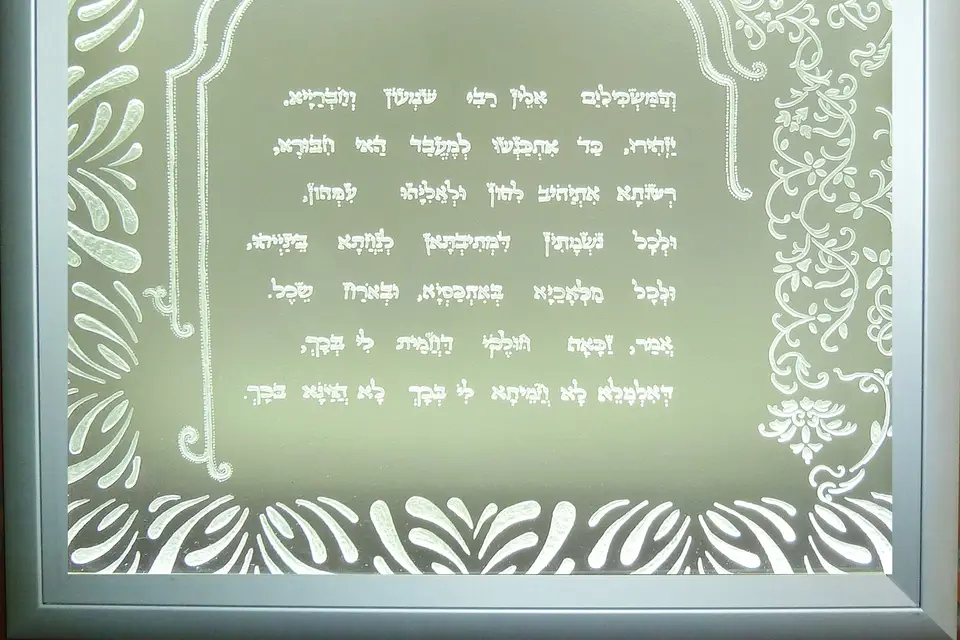 וְהַמַּשְׂכִּילִים אִלֵּין רַבִּי שִׁמְעוֹן וְחַבְרַיָּיא.
יַזְהִירוּ, כַּד אִתְכַּנְּשׁוּ לְמֶעְבַּד הַאי חִבּוּרָא,
רְשׁוּתָא אִתְיְהִיב לְהוֹן וּלְאֵלִיָּהוּ עִמְּהוֹן,
וּלְכָל נִשְׁמָתִין דִּמְתִיבְתָּאן לְנַחֲתָא בֵּינַיְיהוּ,
וּלְכָל מַלְאָכַיָּא בְּאִתְכַּסְיָא, וּבְאֹרַח שֵׂכֶל.
אֲמַר, זַכָּאָה חוּלָקִי דַּחֲמֵית לִי בְּכָךְ,
דְּאִלְמָלֵא לָא חֲמֵיתָא לִי בְּכָךְ לָא הֲוֵינָא בְּכָךְ.